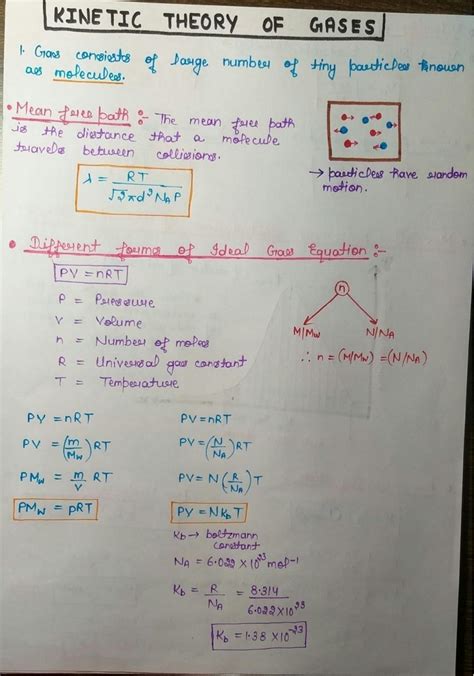 KINETIC THEORY OF GASES
1. Gas consists of large number of tiny particles known
as molecules.
• Mean free path :- The mean free path
is the distance that a molecule
travels between collisions.
λ = RT / √2 πd² N_A P
→ particles have random
motion.
• Different forms of Ideal Gas Equation :-
PV = nRT
P = Pressure
V = Volume
n = Number of moles
R = Universal gas constant
T = Temperature
n
M/Mw N/NA
∴ n = (M/Mw) = (N/NA)
PV = nRT
PV = (m/Mw) RT
PMw = m/V RT
PMw = ρRT
PV = nRT
PV = (N/NA) RT
PV = N (R/NA) T
PV = NKbT
Kb → boltzmann
constant
NA = 6.022 × 10²³ mol⁻¹
Kb = R/NA = 8.314 / 6.022 × 10²³
Kb = 1.38 × 10⁻²³